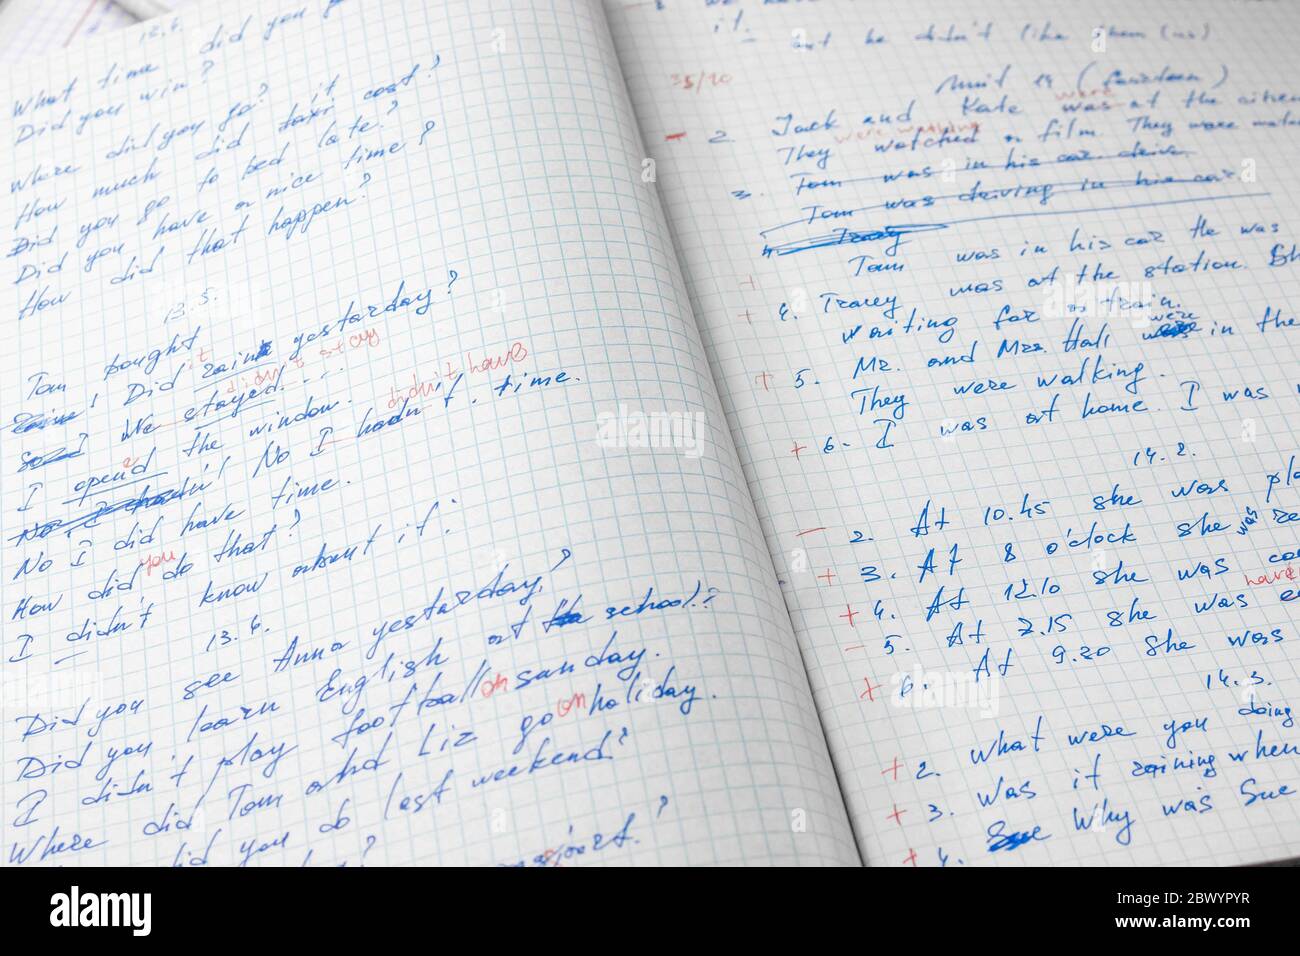 12.4.
What time did you
Did you win?
Where did you go?
How much did taxi it cost?
Did you go to bed late?
Did you have a nice time?
How did that happen?
13.5.
Tom bought
Did rain yesterday?
I We stayed....
didn't stay
I opened the window.
didn't have
No I hadn't time.
No I did have time.
How did you do that?
I didn't know about it.
13.6.
Did you see Anna yesterday?
Did you learn English at school?
I didn't play football on sunday.
Where did Tom and Liz go on holiday.
did you do last weekend?
it.
but he didn't like them
35/40
Unit 14
were
2. Jack and Kate was at the
were watching
They watched a film. They were
3. Tom was in his car. drive.
Tom was driving in his car
Tracy
Tom was in his car He was
+ 4. Tracey was at the station.
waiting for a train.
+ 5. Mr. and Mrs. Hall were in the
They were walking.
+ 6. I was at home. I was
14.2.
- 2. At 10.45 she was
+ 3. At 8 o'clock she was
+ 4. At 12.10 she was
have
- 5. At 2.15 she was
+ 6. At 9.20 she was
14.3.
+ 2. What were you doing
+ 3. Was it raining when
+ 4. Why was Sue
alamy
Image ID: 2BWYPYR
www.alamy.com